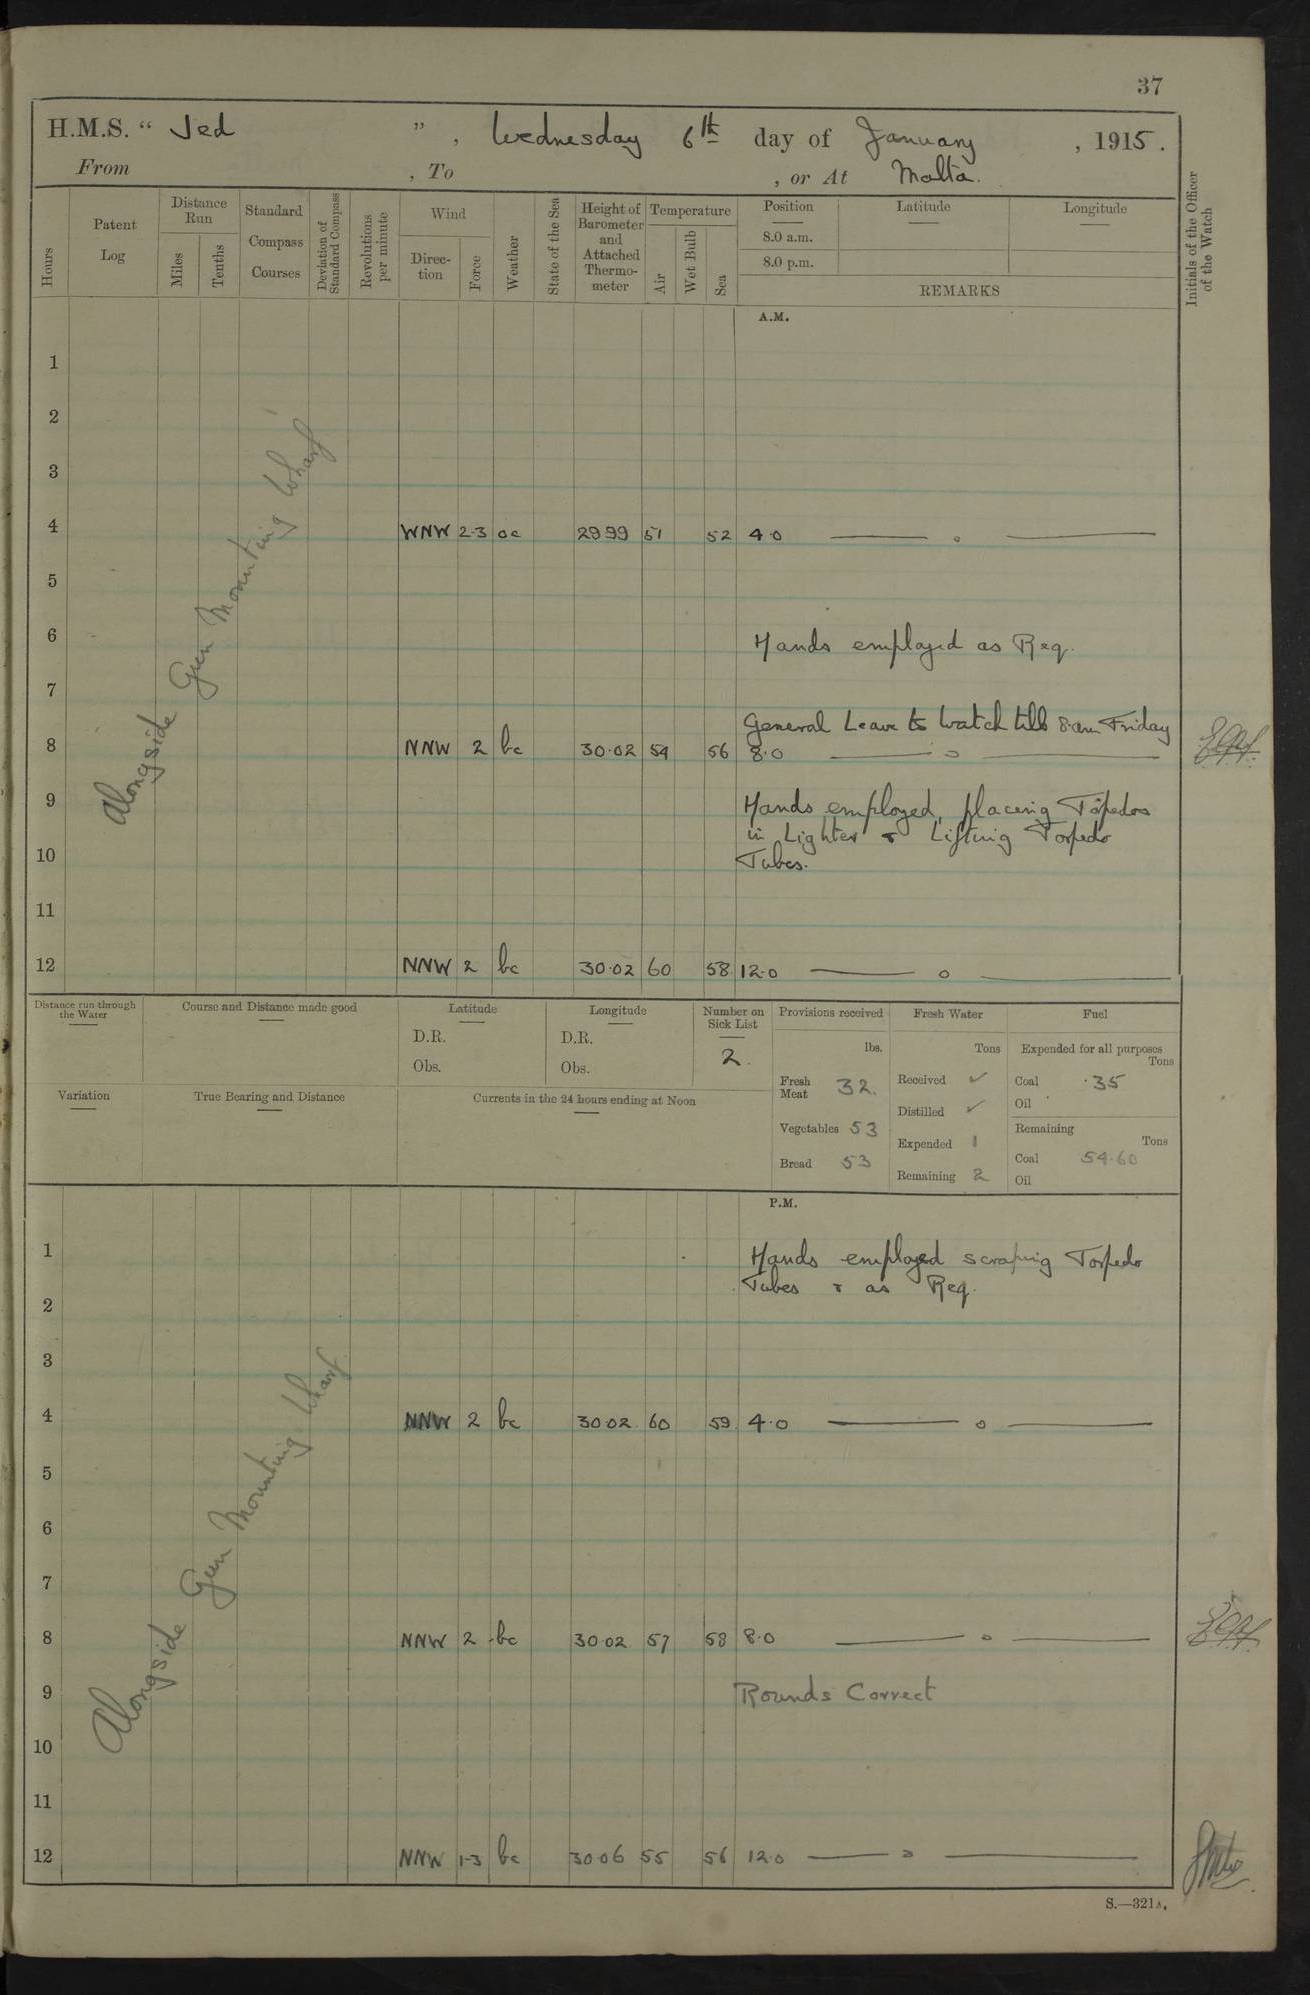 37
H.M.S. " Jed ", Wednesday 6th day of January, 1915.
From , To , or At Malta.
Hours
Patent Log
Distance Run
Miles
Tenths
Standard Compass Courses
Deviation of Standard Compass
Revolutions per minute
Wind
Direc- tion
Force
Weather
State of the Sea
Height of Barometer and Attached Thermo- meter
Temperature
Air
Wet Bulb
Sea
Position
8.0 a.m.
8.0 p.m.
Latitude
Longitude
REMARKS
Initials of the Officer of the Watch
A.M.
Alongside Gun Mounting Wharf
1
2
3
4 WNW 2-3 oc 29 99 51 52 4.0
5
6 Hands employed as Req.
7
General Leave to Watch till 8.am Friday
8 NNW 2 bc 30.02 54 56 8.0
9 Hands employed, placing Torpedos
in Lighter & Lifting Torpedo
10 Tubes.
11
12 NNW 2 bc 30.02 60 58 12.0
Distance run through the Water
Course and Distance made good
Latitude
D.R.
Obs.
Longitude
D.R.
Obs.
Number on Sick List
2.
Provisions received
lbs.
Fresh Meat 32.
Vegetables 53
Bread 53
Fresh Water
Tons
Received ✓
Distilled ✓
Expended 1
Remaining 2
Fuel
Expended for all purposes
Tons
Coal .35
Oil
Remaining
Tons
Coal 54.60
Oil
Variation
True Bearing and Distance
Currents in the 24 hours ending at Noon
P.M.
Alongside Gun Mounting Wharf
1 Hands employed scraping Torpedo
Tubes & as Req.
2
3
4 NNW 2 bc 30 02 60 59 4.0
5
6
7
8 NNW 2 bc 30.02 57 58 8.0
9 Rounds Correct
10
11
12 NNW 1-3 bc 30 06 55 56 12.0
S.—321A.